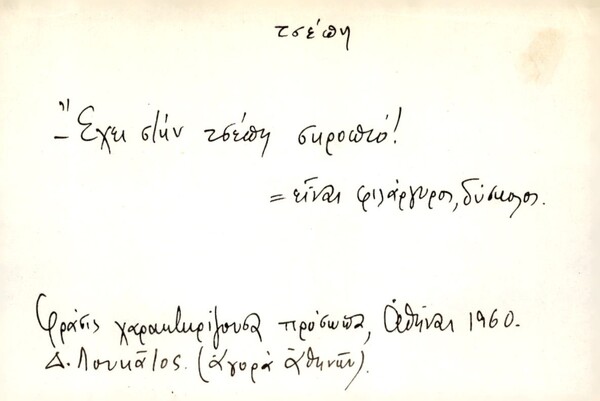 τσέπη
"– Ἔχει στὴν τσέπη σκροπιό!
= εἶναι φιλάργυρος, δύσκολος.
Φράσις χαρακτηρίζουσα πρόσωπα, Ἀθῆναι 1960.
Δ. Λουκᾶτος. (ἀγορὰ Ἀθηνῶν).